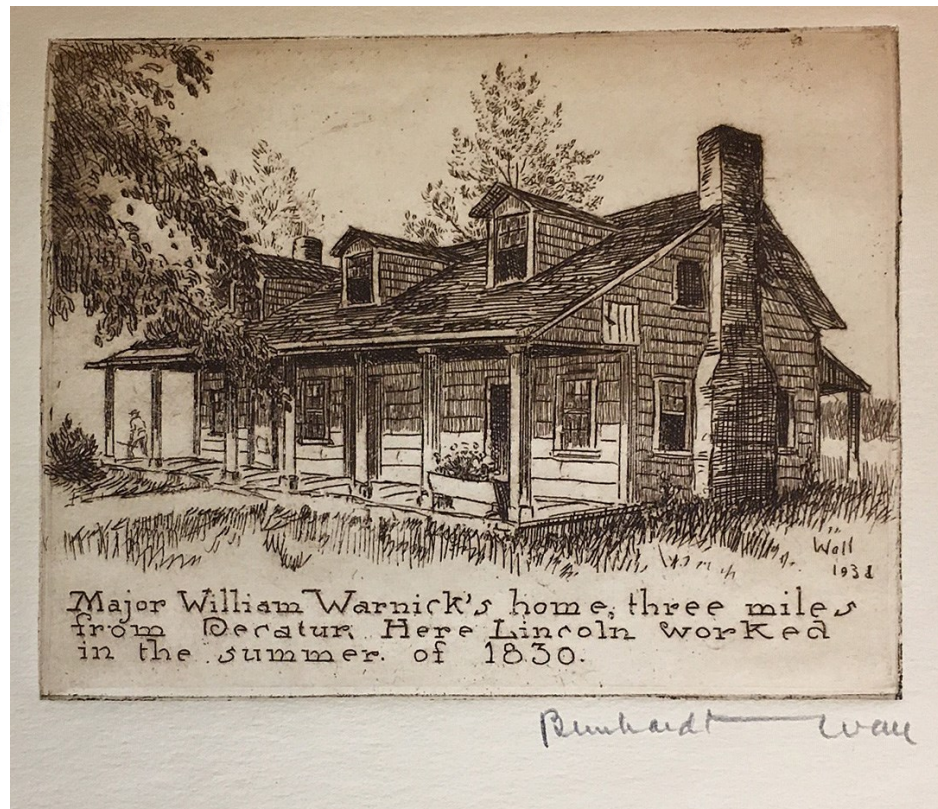 Wall
1931
Major William Warnick's home, three miles
from Decatur. Here Lincoln worked
in the summer. of 1830.
Bernhardt Wall